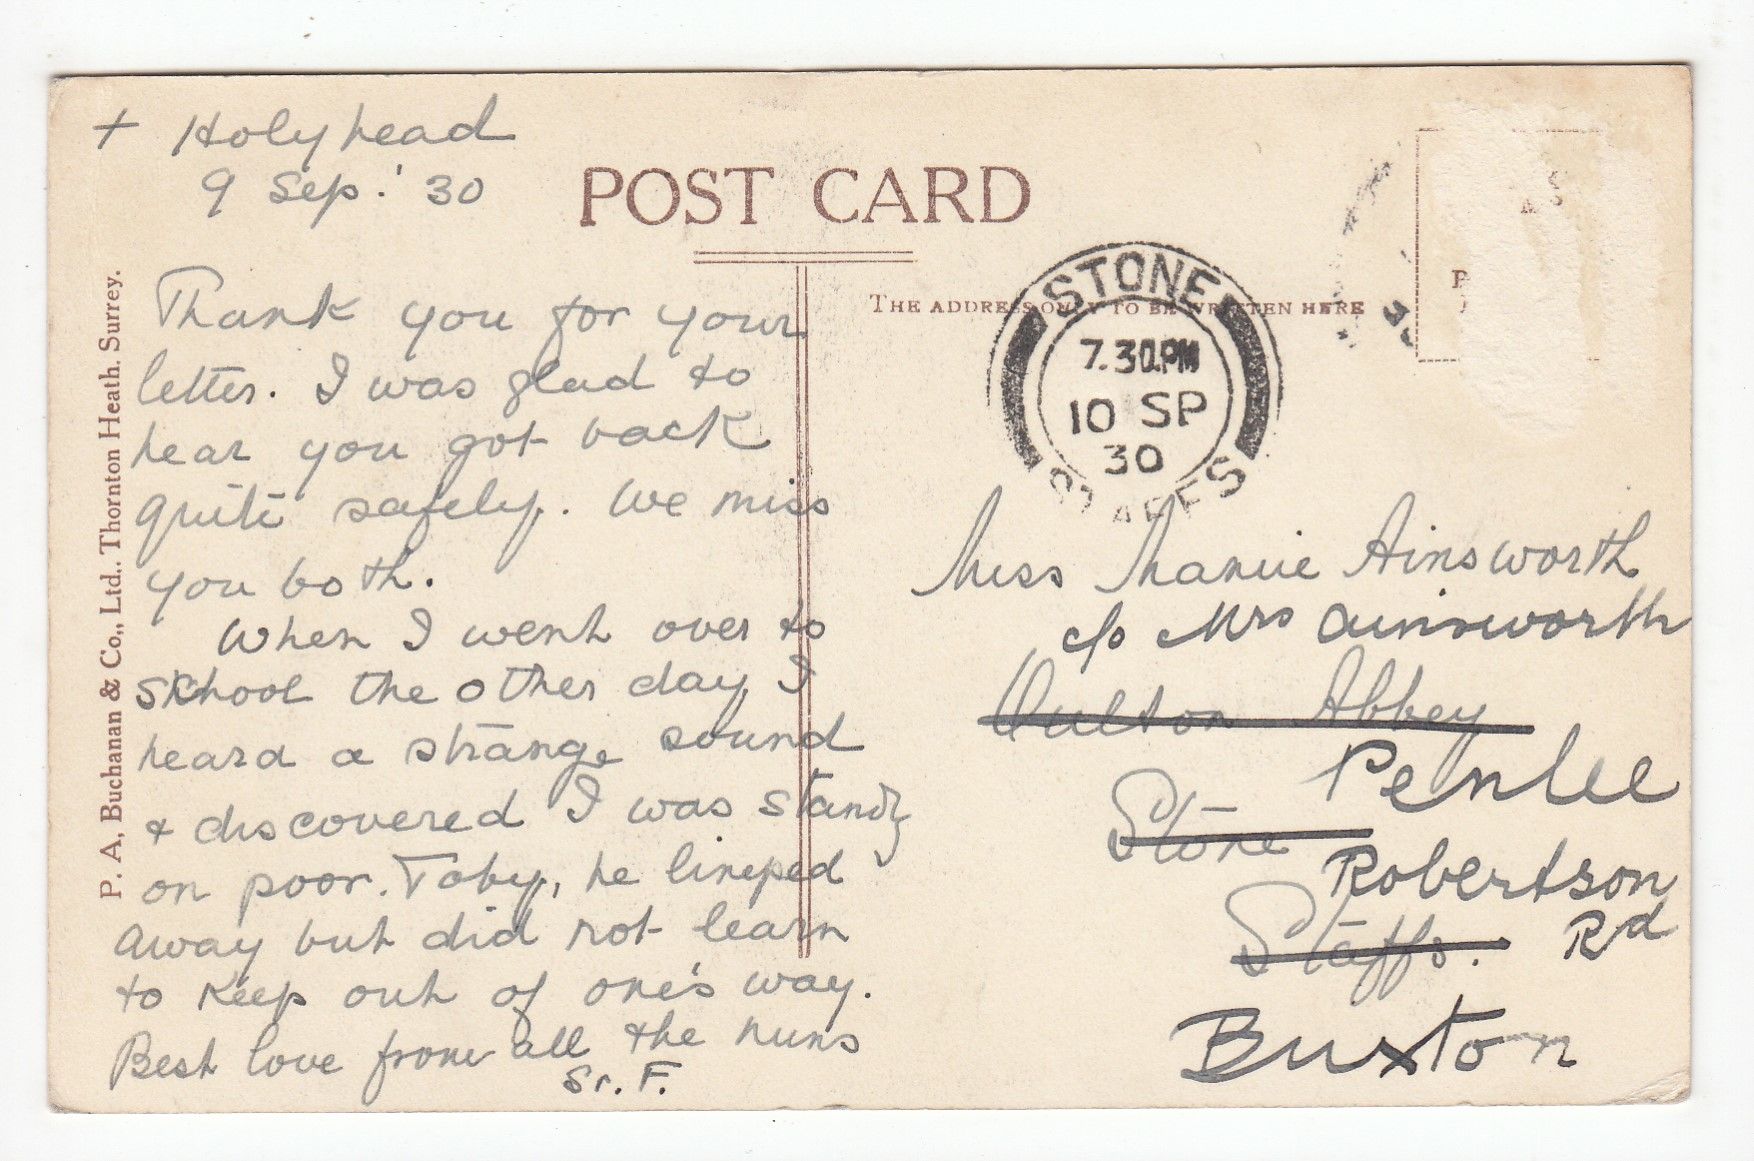 + Holyhead
9 Sep. '30
POST CARD
THE ADDRESS ONLY TO BE WRITTEN HERE
STONE
7.30PM
10 SP
30
STAFFS
P. A. Buchanan & Co., Ltd., Thornton Heath, Surrey.
Thank you for your
letter. I was glad to
hear you got back
quite safely. We miss
you both.
When I went over to
school the other day I
heard a strange sound
& discovered I was standg
on poor Toby, he limped
away but did not learn
to keep out of one's way.
Best love from all the nuns
Sr. F.
Miss Mamie Ainsworth
c/o Mrs Ainsworth
Oulton Abbey
Penlee
Stone
Robertson
Rd
Staffs.
Buxton